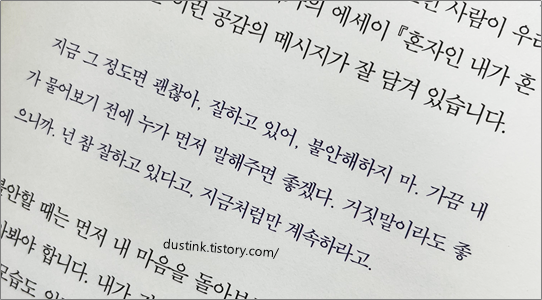 사람이
이런 공감의 메시지가 잘 담겨 있습니다.
의 에세이 『혼자인 내가 혼
지금 그 정도면 괜찮아, 잘하고 있어, 불안해하지 마. 가끔 내
가 물어보기 전에 누가 먼저 말해주면 좋겠다. 거짓말이라도 좋
으니까. 넌 참 잘하고 있다고, 지금처럼만 계속하라고.
불안할 때는 먼저 내 마음을 돌아보
아봐야 합니다. 내가
모습도
dustink.tistory.com/